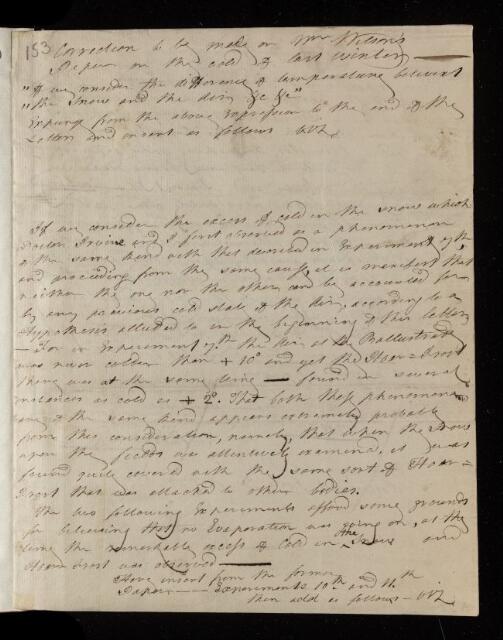 153
Correction to be made on Mr Wilson's
Paper on the cold of last winter
"If we consider the difference of temperature between
"the Snow and the air, &c &c"
Expunge from the above expression to the end of the
Letter and insert as follows viz.
If we consider the excess of cold in the snow which
Doctor Irvine and I first observed as a phenomenon
of the same kind with that described in Experiment 7th
and proceeding from the same cause, it is manifest that
neither the one nor the other can be accounted for
by any previous cold state of the air, according to a
Hypothesis alluded to in the beginning of this letter
— For in Experiment 7th the Air at the Balustrade
was never colder than + 10° and yet the Hoar-frost
there was at the same time — found in several
instances as cold as + 2°. That both these phenomena
are of the same kind appears extremely probable
from this consideration, namely, that when the Snow
upon the fields was attentively examined, it was
found quite covered with the same sort of Hoar=
Frost that was attached to other bodies.
The two following Experiments afford some grounds
for believing that no Evaporation was going on, at the
time the remarkable excess of Cold in the Snow and
Hoar frost was observed
Here insert from the former
Paper — Experiments 10th and 11th
then add as follows — viz